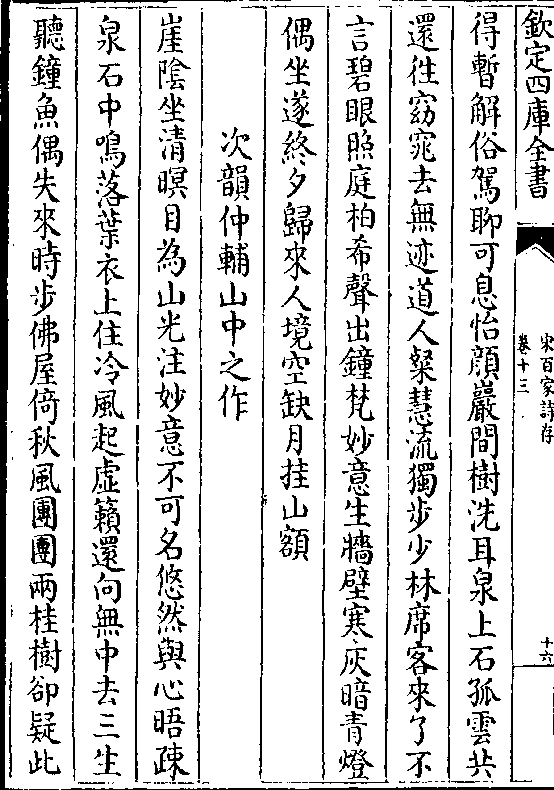 欽定四庫全書
宋百家詩存
卷十三
十六
得暫解俗駕聊可息怡顏巖間樹洗耳泉上石孤雲共
還徃窈窕去無迹道人粲慧流獨步少林席客來了不
言碧眼照庭柏希聲出鐘梵妙意生牆壁寒灰暗青燈
偶坐遂終夕歸來人境空缺月挂山額
次韻仲輔山中之作
崖陰坐清暝目為山光注妙意不可名悠然與心晤疎
泉石中鳴落葉衣上住冷風起虛籟還向無中去三生
聽鐘魚偶失來時步佛屋倚秋風團團兩桂樹卻疑此